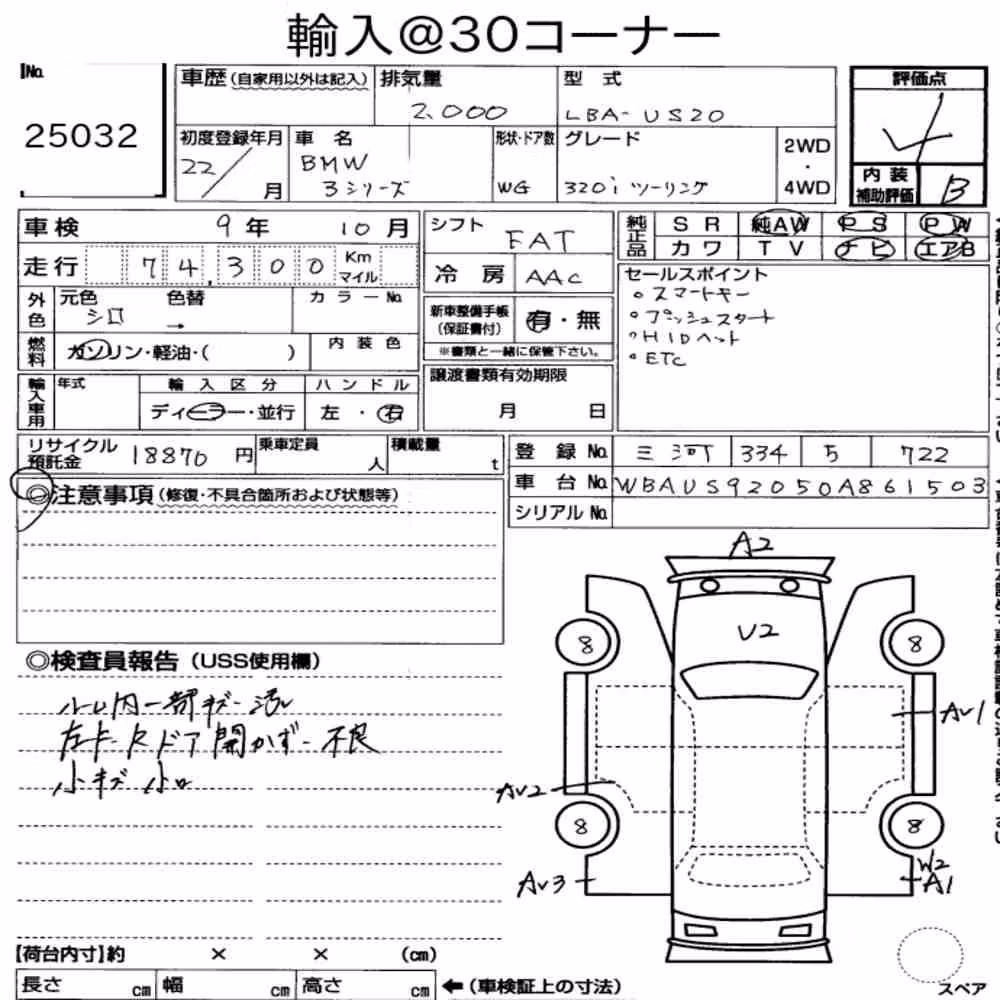 輸入@30コーナー
No.
25032
車歴(自家用以外は記入)
排気量
2,000
型 式
LBA-US20
初度登録年月
22/ 月
車 名
BMW
3シリーズ
形状・ドア数
WG
グレード
320i ツーリング
2WD
・
4WD
評価点
4
内装
補助評価
B
車検 9年 10月
走行 74,300 Km
マイル
外色
元色
シロ
色替
→
カラーNo.
燃料
ガソリン・軽油・( )
内装色
輸入車用
年式
輸入区分
ディーラー・並行
ハンドル
左・右
シフト
FAT
冷房
AAC
新車整備手帳
(保証書付)
有・無
※書類と一緒に保管下さい。
譲渡書類有効期限
月 日
純正品
SR 純AW PS PW
カワ TV ナビ エアB
セールスポイント
。スマートキー
。プッシュスタート
。HIDヘット
。ETC
リサイクル
預託金
18870 円
乗車定員
人
積載量
t
登録No. 三河 334 5 722
車台No. WBAUS92050A861503
シリアルNo.
◎注意事項(修復・不具合箇所および状態等)
◎検査員報告(USS使用欄)
ルーム内一部キズ・汚レ
左F・Rドア開かず・不良
小キズ 小凹
A2
V2
8
8
AV1
AV2
8
8
AV3
W2
A1
【荷台内寸】約 × × (cm)
長さ cm 幅 cm 高さ cm
←(車検証上の寸法)
スペア